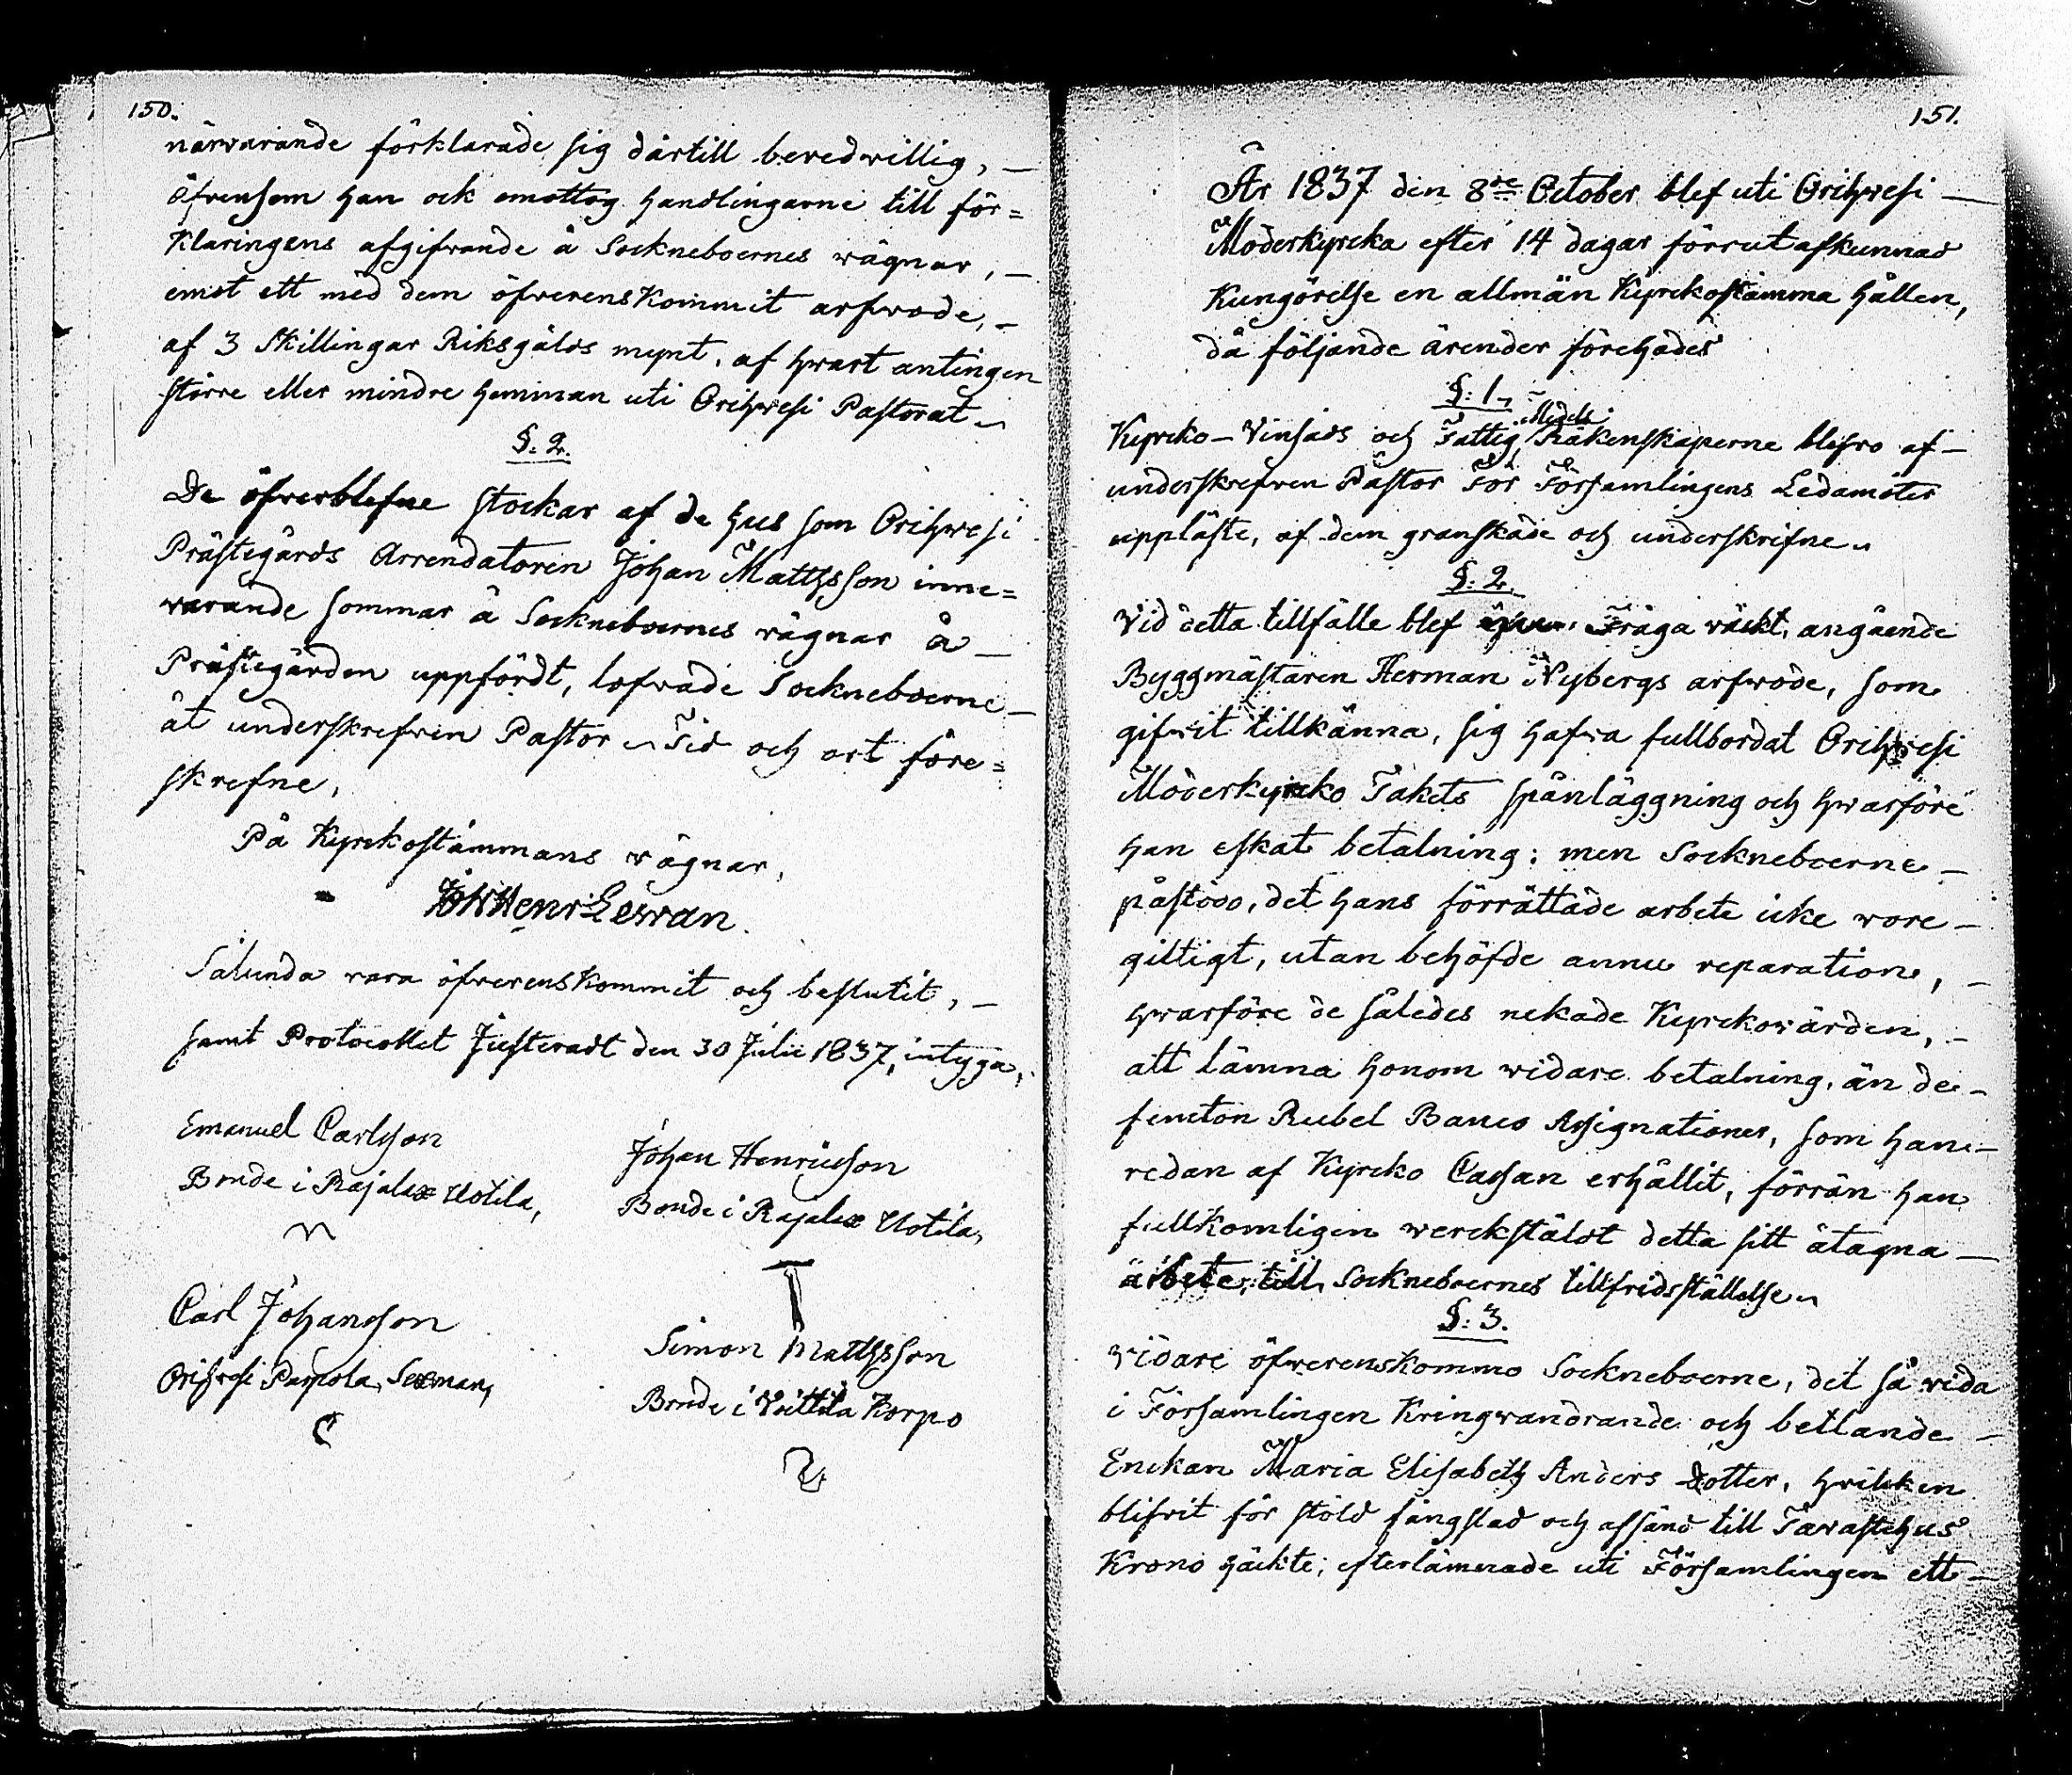 150.
närvarande förklarade sig därtill beredwillig, —
äfvensom han ock emottog handlingarne till för=
klaringens afgifvande å Sockneboernes wägnar, —
emot ett med dem öfwerenskommit arfwode, —
af 3 Skillingar Riksgälds mynt, af hwart antingen
större eller mindre hemman uti Orihwesi Pastorat
§: 2.
De öfwerblefne stockar af de hus som Orihwesi
Prästegårds Arrendatoren Johan Matthsson inne=
warande sommar å Sockneboernes wägnar å —
Prästegården uppfördt, lofwade Sockneboerne —
åt underskrefwen Pastor. Tid och ort före=
skrefne,
På Kyrckostämmans wägnar,
Joh Henr Lewan.
Sålunda vara öfwerenskommit och beslutit, —
samt Protocollet Justeradt den 30 Julii 1837, intyga,
Emanuel Carlsson
Bonde i Rajalax Uotila,
Johan Henricsson
Bonde i Rajalax Uotila,
Carl Johansson
Orihwesi Parpola, Sexman,
Simon Matthsson
Bonde i Voittila Korpo
151.
År 1837 den 8de October blef uti Orihwesi —
Moderkyrcka efter 14 dagar förrut afkunnad
Kungörelse en allmän Kyrckostämma hållen,
då följande ärender förehades
§: 1.
Medels
Kyrcko- Vinsäds och Fattig Räkenskaperne blefwo af —
underskrefwen Pastor För Församlingens Ledamöter
uppläste, af dem granskade och underskrifne.
§: 2.
Vid detta tillfälle blef Fråga väckt, angående
Byggmästaren Herman Nybergs arfwode, som
gifwit tillkänna, sig hafwa fullbordat Orihwesi
Moderkyrcko Takets spånläggning och hwarföre
han eskat betalning; men Sockneboerne —
påstodo, det hans förrättade arbete icke wore —
giltigt, utan behöfde annu reparation, —
hwarföre de således nekade Kyrckowärden, —
att lämna honom widare betalning, än de —
femton Rubel Banco Assignationer, som han —
redan af Kyrcko Cassan erhållit, förrän han
fullkomligen werckstäldt detta sitt åtagna —
arbete, till Sockneboernes tillfridsställelse.
§: 3.
Vidare öfwerenskommo Sockneboerne, det så wida
i Församlingen kringwandrande och betlande —
Enckan Maria Elisabeth Anders dotter, hwilcken
blifwit för stöld fängslad och afsänd till Tawastehus
Krono häckte; efterlämnade uti Församlingen ett —